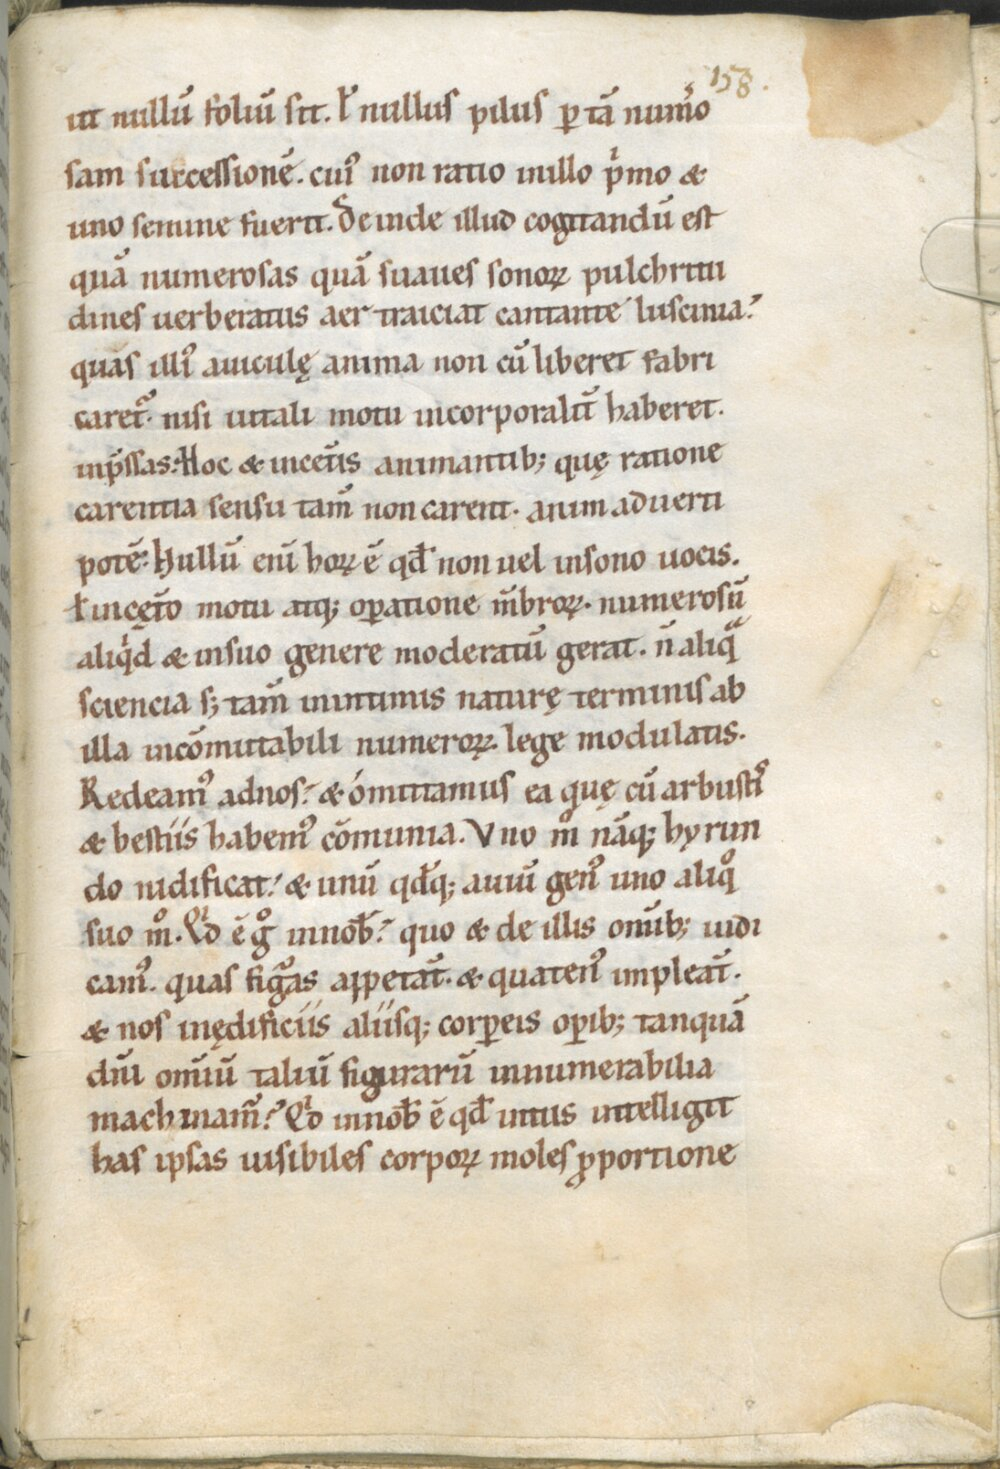 158.
ut nullū foliū sit. ł nullus pilus ꝑ tā num̄o
sam successionē. cuiꝰ non ratio in illo pͥmo &
uno semine fuerit. Deinde illud cogitandū est
quā numerosas quā suaues sonoꝝ pulchritu
dines uerberatus aer traiciat cantante luscinia?
quas illiꝰ auiculę anima non cū liberet fabri
caretᷓ. nisi uitali motu incorporalit̄ haberet.
inp̄ssas. Hoc & in cet̄is animantib; quę ratione
carentia sensu tam̄ non carent. animaduerti
potē. Nullū eni̅ hoꝝ ē qđ non uel in sono uocis.
ł in cęt̄o motu atq; oꝑatione m̄broꝝ. numerosū
aliqͥd & in suo genere moderatū gerat. n̄ aliqᷓ
sciencia s; tam̄ in intimis naturę terminis ab
illa incōmutabili numeroꝝ lege modulatis.
Redeamꝰ ad nos. & omittamus ea quę cū arbustꝭ
& bestiis habemꝰ cōmunia. Uno mͦ nāq; hyrun
do nidificat. & unū qđq; auiū genꝰ uno aliqͦ
suo mͦ. Qͥd ē gͦ in nob̄? quo & de illis om̄ib; iudi
camꝰ. quas figᷓas appetāt. & quatenꝰ impleāt.
& nos in ędificiis aliisq; corꝑeis oꝑib; tanquā
dn̄i om̄iū taliū figurarū innumerabilia
machinam̄? Qͥd in nob̄ ē qđ intus intelligit
has ipsas uisibiles corpoꝝ moles ꝓportione